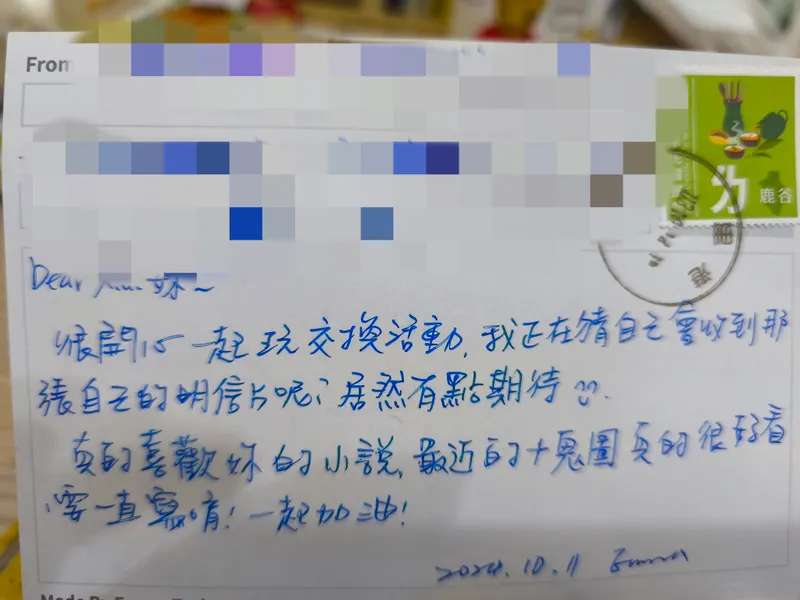 From
鹿谷
Dear 妹~
很開心一起玩交換活動,我正在猜自己會收到那
張自己的明信片呢?居然有點期待
真的喜歡妳的小說,最近的十鬼圖真的很好看
要一直寫唷!一起加油!
2024.10.11 Emma